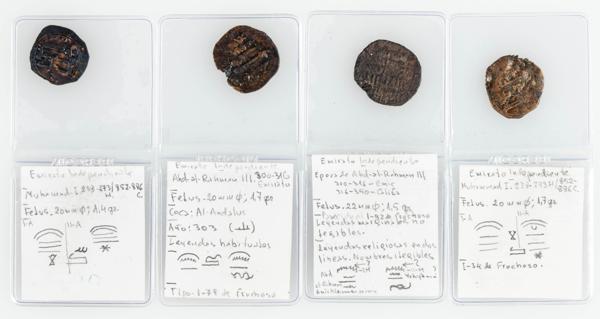 Emirato Independiente
Muhammad I. 238-273/852-886
H. C.
Felus. 20mm φ; 1,4 gr
I-A II-A
Emirato Independiente
Abd-al-Rahman III. 300-316
Emirato
Felus. 20mm φ; 1,7 gr
Ceca: Al-Andalus
Año: 303
Leyendas habituales
Tipo: de Frochoso
Emirato Independiente
Epoca de Abd-al-Rahman III
300-316 = Emir
316-350 = Califa
Felus. 22mm φ; 1,5 gr
Leyendas marginales no
legibles.
Leyendas religiosas en dos
lineas. Nombres ilegibles
Emirato Independiente
Muhammad I. 238-273H/852-
886 C.
Felus. 20mm φ; 1,7 gr
I-A II-A
I-34 de Frochoso.